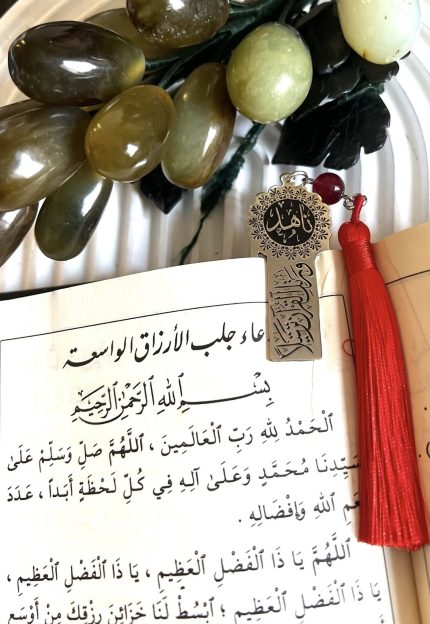 ناهد
ورتل القرآن ترتيلا
عاء جلب الأرزاق الواسعة
بِسْمِ اللهِ الرَّحْمٰنِ الرَّحِيْمِ
اَلْحَمْدُ لِلهِ رَبِّ ٱلْعَالَمِينَ ، اَللَّهُمَّ صَلِّ وَسَلِّمْ عَلَىٰ
سَيِّدِنَا مُحَمَّدٍ وَعَلَىٰ آلِهِ فِي كُلِّ لَحْظَةٍ أَبَداً ، عَدَدَ
ٱللهِ وَإِفْضَالِهِ .
اَللَّهُمَّ يَا ذَا ٱلْفَضْلِ ٱلْعَظِيمِ ، يَا ذَا ٱلْفَضْلِ ٱلْعَظِيمِ ،
يَا ذَا ٱلْفَضْلِ ٱلْعَظِيمِ ؛ ٱبْسُطْ لَنَا خَزَائِنَ رِزْقِكَ مِنْ أَوْسَعِ